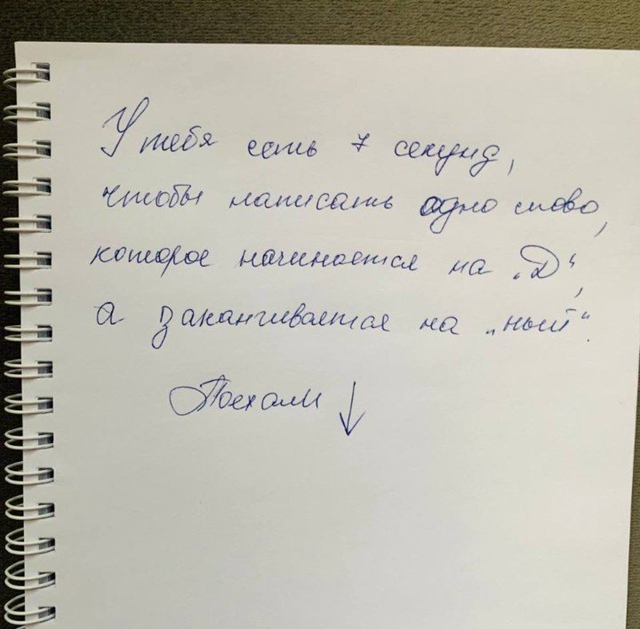 У тебя есть 7 секунд,
чтобы написать одно слово,
которое начинается на „Д“,
а заканчивается на „ный“.
Поехали ↓